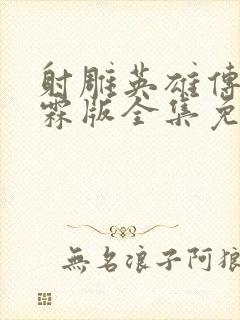 射雕英雄傳
霖版全集免
無名浪子阿狼